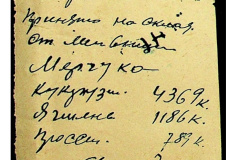 Принято на склад
от
Мелчука
кукурузы. 4369 к.
Ячмень 1186 к.
Просо. 789 к.